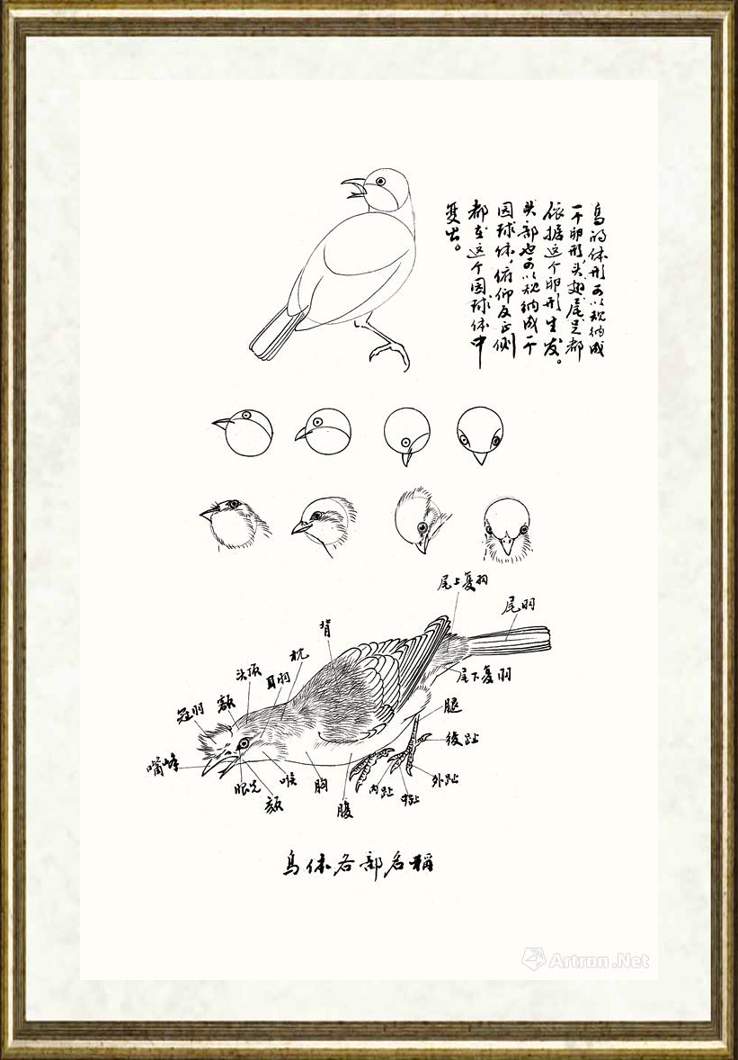 鸟的体形可以规纳成
一个卵形,头、翅、尾、足都
依据这个卵形生发。
头部也可以规纳成一个
圆球体,俯仰反正侧
都在这个圆球体中
变出。
尾上复羽
尾羽
背
枕
耳羽
头顶
额
冠羽
嘴峰
眼先
颏
喉
胸
腹
内趾
中趾
外趾
後趾
腿
尾下复羽
鸟体各部名稱
Artron.Net